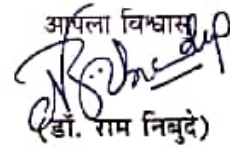 आपला विश्वासू
(डॉ. राम निबुदे)